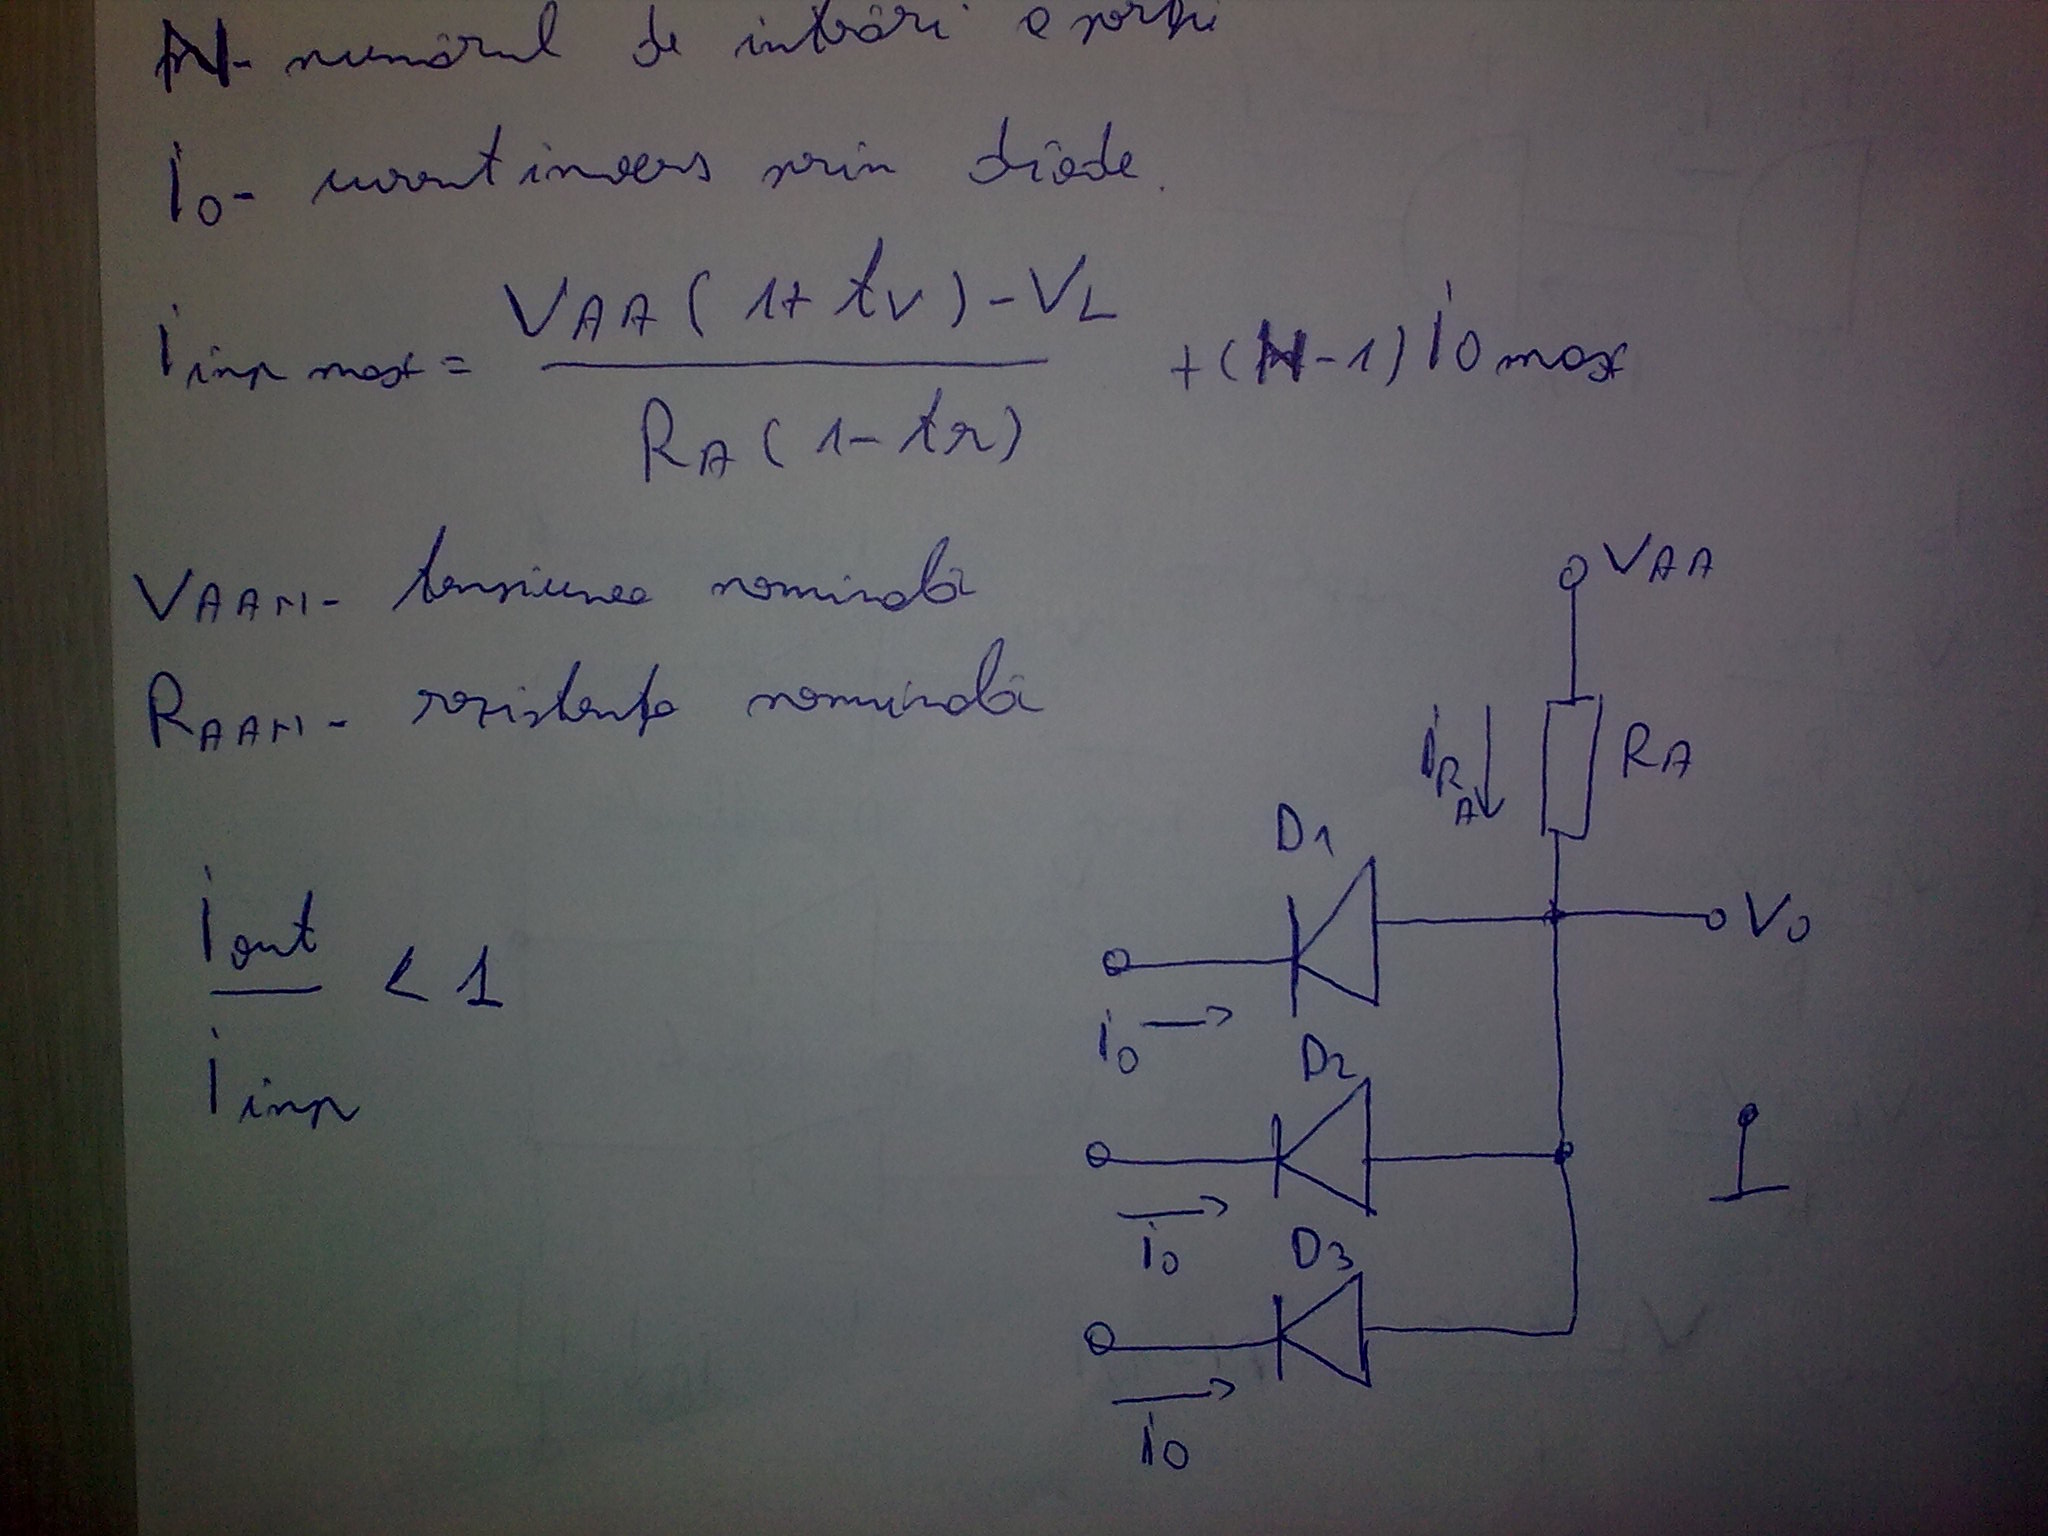 N- numărul de intrări a porții
i0- curent invers prin diode.
iinp max = VAA(1+tv)-VL / RA(1-tr) + (N-1) i0 max
VAAN- tensiunea nominală
RAAN- rezistența nominală
VAA
iRA
RA
D1
V0
iout / iinp < 1
i0
D2
i0
D3
i0